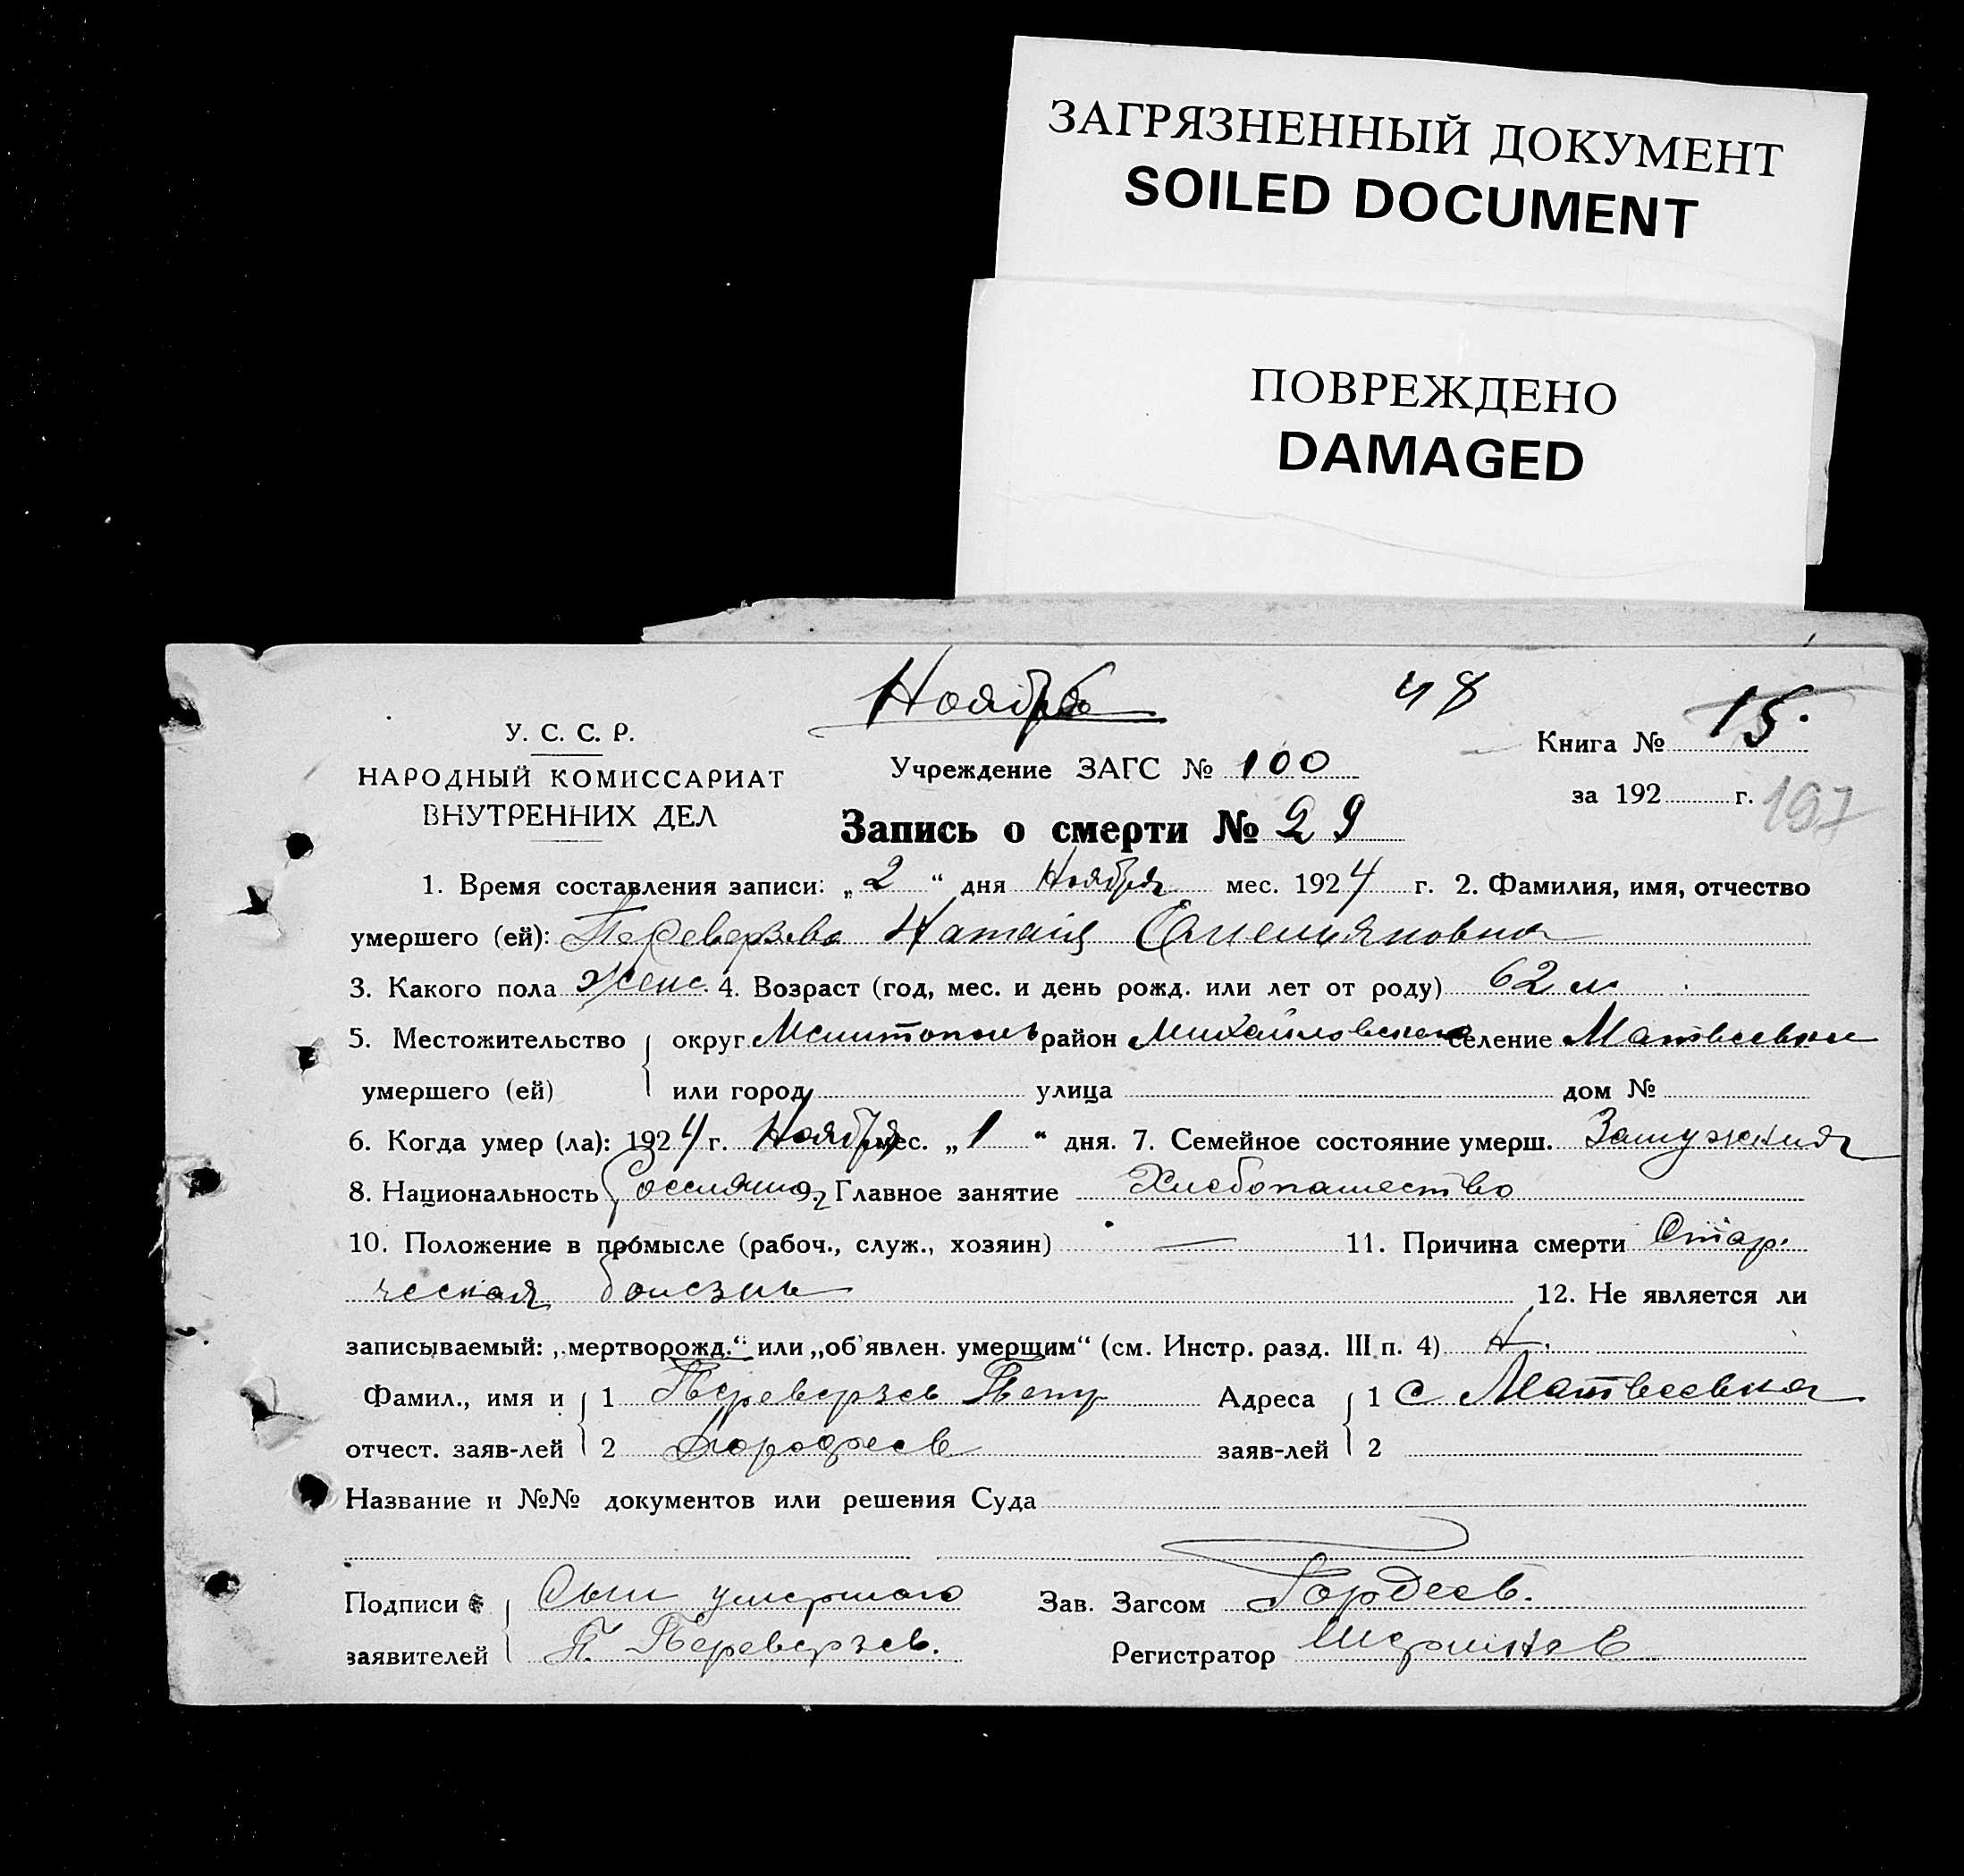 ЗАГРЯЗНЕННЫЙ ДОКУМЕНТ
SOILED DOCUMENT
ПОВРЕЖДЕНО
DAMAGED
Ноябрь 48
У. С. С. Р.
НАРОДНЫЙ КОМИССАРИАТ
ВНУТРЕННИХ ДЕЛ
Учреждение ЗАГС № 100
Книга № 15.
за 192 г. 197
Запись о смерти № 29
1. Время составления записи: „2“ дня Ноября мес. 1924 г. 2. Фамилия, имя, отчество
умершего (ей): Переверзева Наталия Емельяновна
3. Какого пола женс. 4. Возраст (год, мес. и день рожд. или лет от роду) 62 л.
5. Местожительство умершего (ей) округ Мелитополь район Михайловский селение Матвеевка
или город улица дом №
6. Когда умер (ла): 1924 г. Ноября мес. „1“ дня. 7. Семейное состояние умерш. Замужняя
8. Национальность 9. Главное занятие Хлебопашество
10. Положение в промысле (рабоч., служ., хозяин) — 11. Причина смерти Стар.
ческая болезнь 12. Не является ли
записываемый: „мертворожд.“ или „об'явлен. умершим“ (см. Инстр. разд. III п. 4) Н.
Фамил., имя и отчест. заяв-лей 1 Переверзев Петр Адреса заяв-лей 1 с Матвеевка
2 Дорофеев 2
Название и №№ документов или решения Суда
Подписи заявителей Сын умершаго Зав. Загсом Гордеев.
П. Переверзев. Регистратор